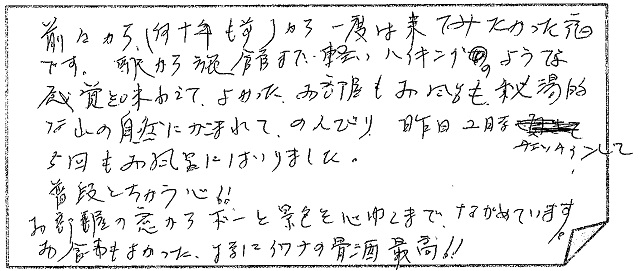 前々から、(何十年も前)から一度は来てみたかった宿
です。駅から旅館まで軽いハイキングのような
感覚を味わえて、よかった。お部屋もお風呂も、秘湯的
な山の自然にかこまれて、のんびり 昨日2時
チェックインして
5回もお風呂にはいりました。
普段とちがう心!!
お部屋の窓からボーと景色を心ゆくまで、ながめています。
お食事もよかった、まさにイワナの骨酒最高!!